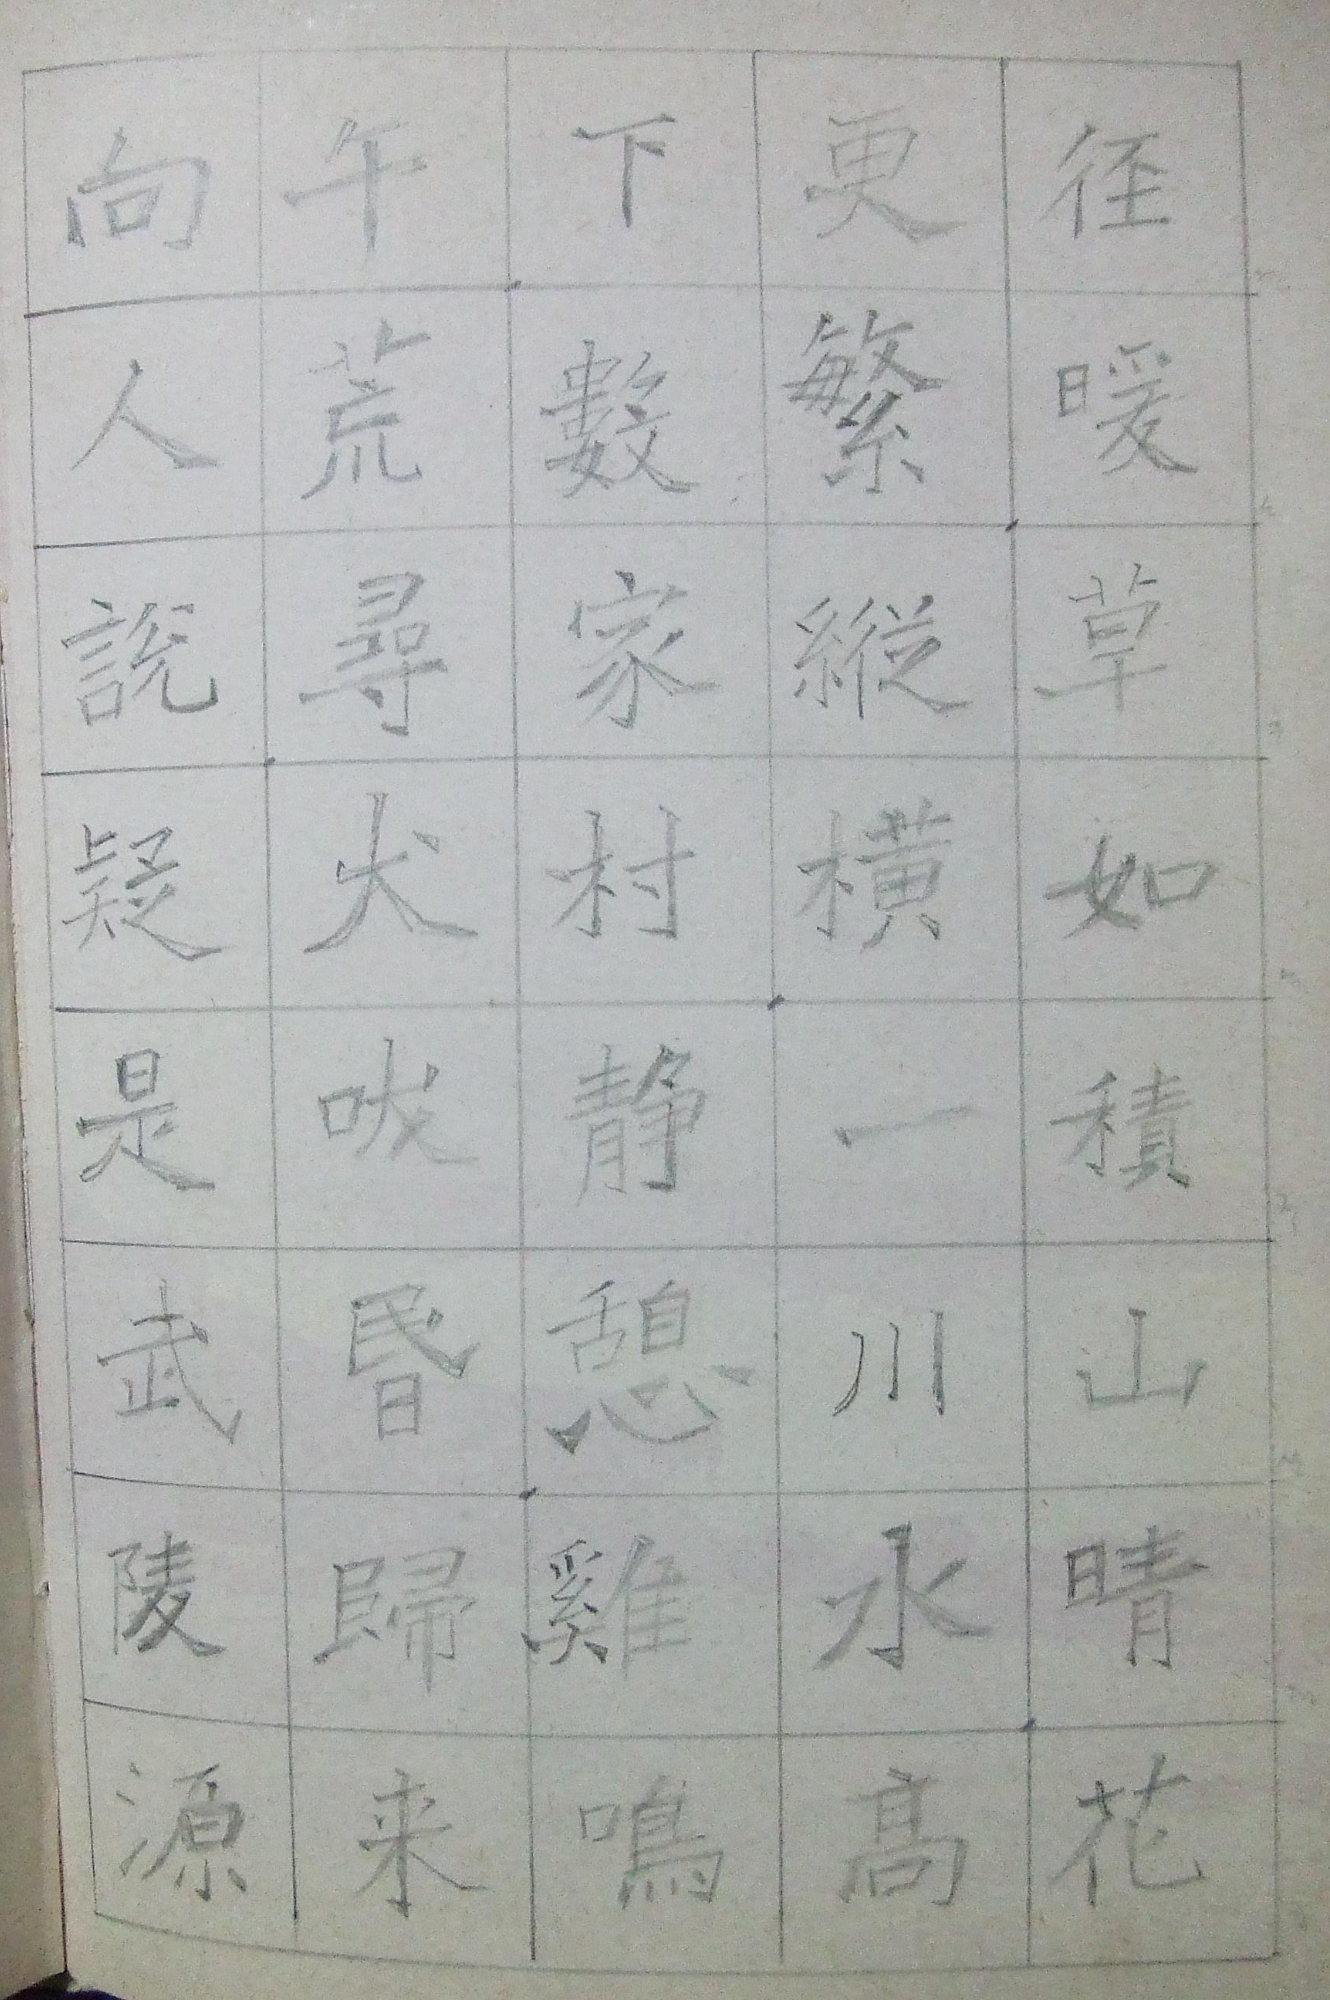 径暖草如積山晴花
更繁縦橫一川水高
下數家村静憩雞鳴
午荒尋犬吠昏歸来
向人說疑是武陵源